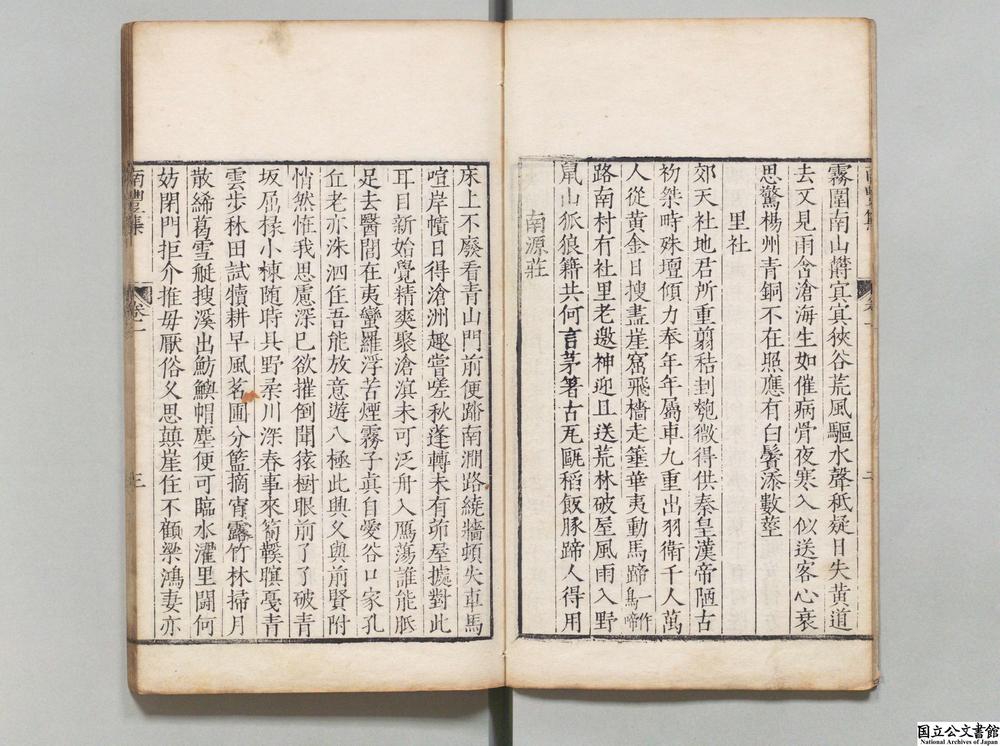 霧圍南山鬱冥冥狹谷荒風驅水聲秪疑日失黃道
去又見雨含滄海生如催病骨夜寒入似送客心衰
思驚楊州青銅不在照應有白鬢添數莖
里社
郊天社地君所重翦秸封匏微得供秦皇漢帝陋古
初桀時殊壇傾力奉年年屬車九重出羽衛千人萬
人從黃金日搜盡崖窟飛檣走箠華夷動馬蹄一作鳥啼
路南村有社里老邀神迎且送荒林破屋風雨入野
鼠山狐狼籍共何言茅箸古瓦甌稻飯豚蹄人得用
南源莊
床上不廢看青山門前便踏南澗路繞牆頓失車馬
喧岸幘日得滄洲趣嘗嗟秋蓬轉未有茆屋據對此
耳目新始覺精爽聚滄溟未可泛舟入鴈蕩誰能胝
足去醫閭在夷蠻羅浮苦煙霧子真自愛谷口家孔
丘老亦洙泗住吾能放意遊八極此興又與前賢附
悄然惟我思慮深已欲摧倒聞猿樹眼前了了破青
坂屈椽小棟隨時具野柔川深春事來籥鞻嗔戞青
雲步秫田試犢耕早風茗圃分籃摘宵露竹林掃月
散絺葛雪艇搜溪出魴鱮帽塵便可臨水濯里鬧何
妨閉門拒介推毋厭俗又思顛崖住不顧梁鴻妻亦
南豐集
卷一
三
國立公文書館
National Archives of Japan